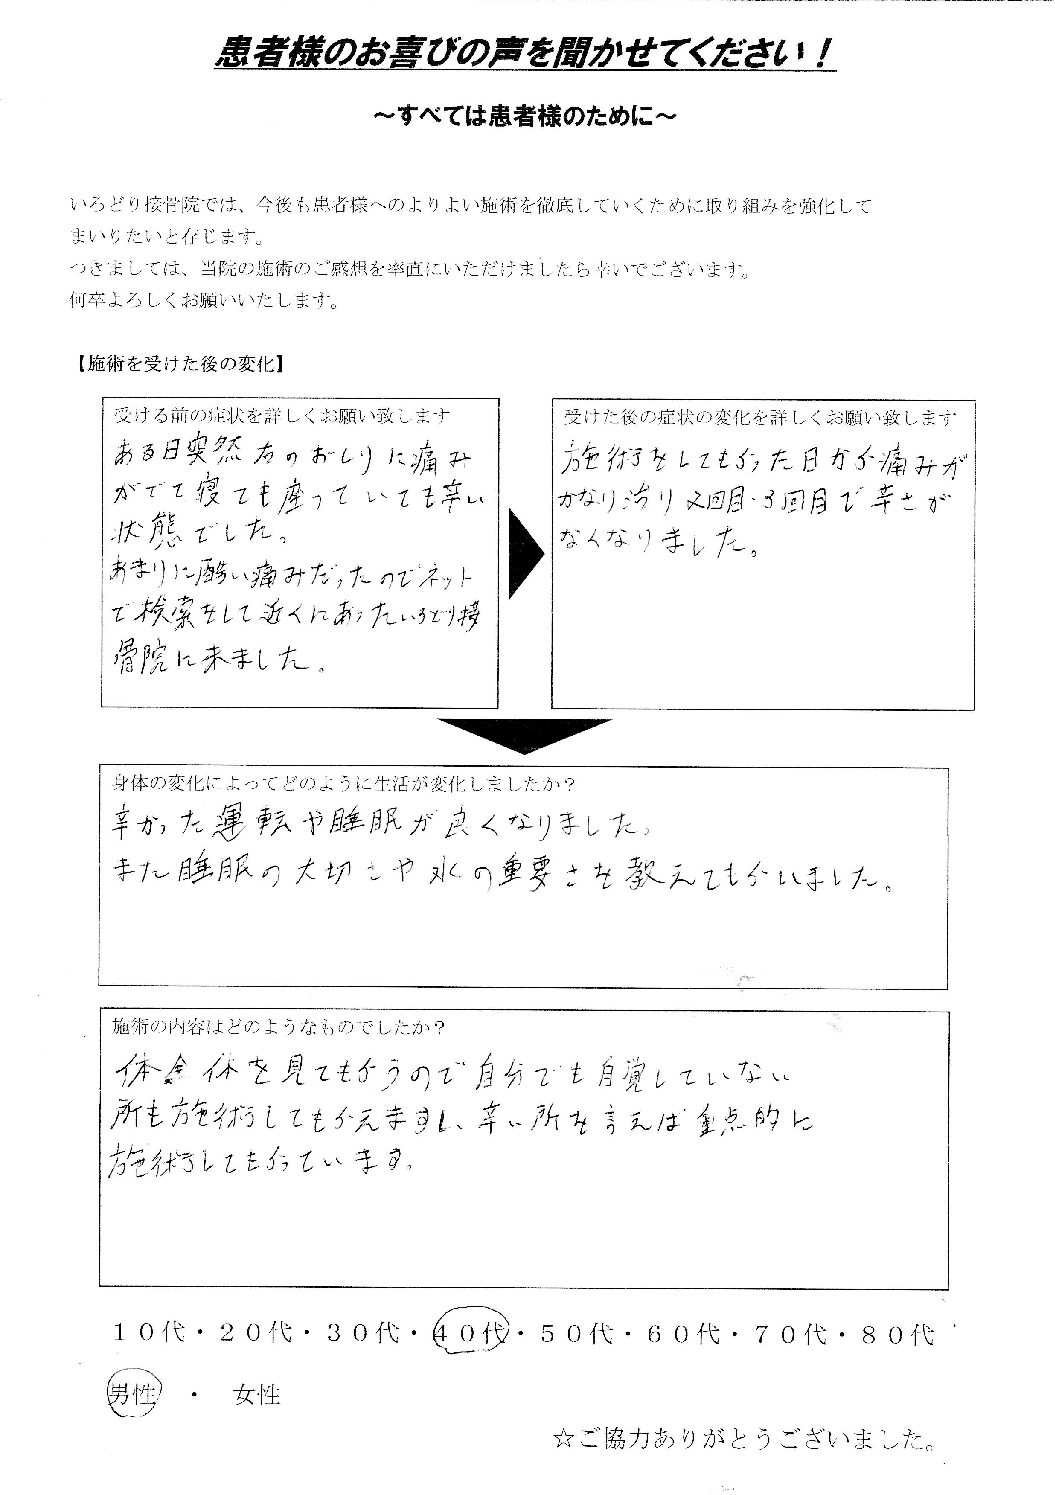 患者様のお喜びの声を聞かせてください！
～すべては患者様のために～
いろどり接骨院では、今後も患者様へのよりよい施術を徹底していくために取り組みを強化して
まいりたいと存じます。
つきましては、当院の施術のご感想を率直にいただけましたら幸いでございます。
何卒よろしくお願いいたします。
【施術を受けた後の変化】
受ける前の症状を詳しくお願い致します
ある日突然右のおしりに痛み
がでて寝ても座っていても辛い
状態でした。
あまりに酷い痛みだったのでネット
で検索をして近くにあったいろどり接
骨院に来ました。
受けた後の症状の変化を詳しくお願い致します
施術をしてもらった日から痛みが
かなり治り2回目・3回目で辛さが
なくなりました。
身体の変化によってどのように生活が変化しましたか？
辛かった運転や睡眠が良くなりました。
また睡眠の大切さや水の重要さを教えてもらいました。
施術の内容はどのようなものでしたか？
体全体を見てもらうので自分でも自覚していない
所も施術してもらえますし、辛い所を言えば重点的に
施術してもらっています。
１０代・２０代・３０代・４０代・５０代・６０代・７０代・８０代
男性　・　女性
☆ご協力ありがとうございました。